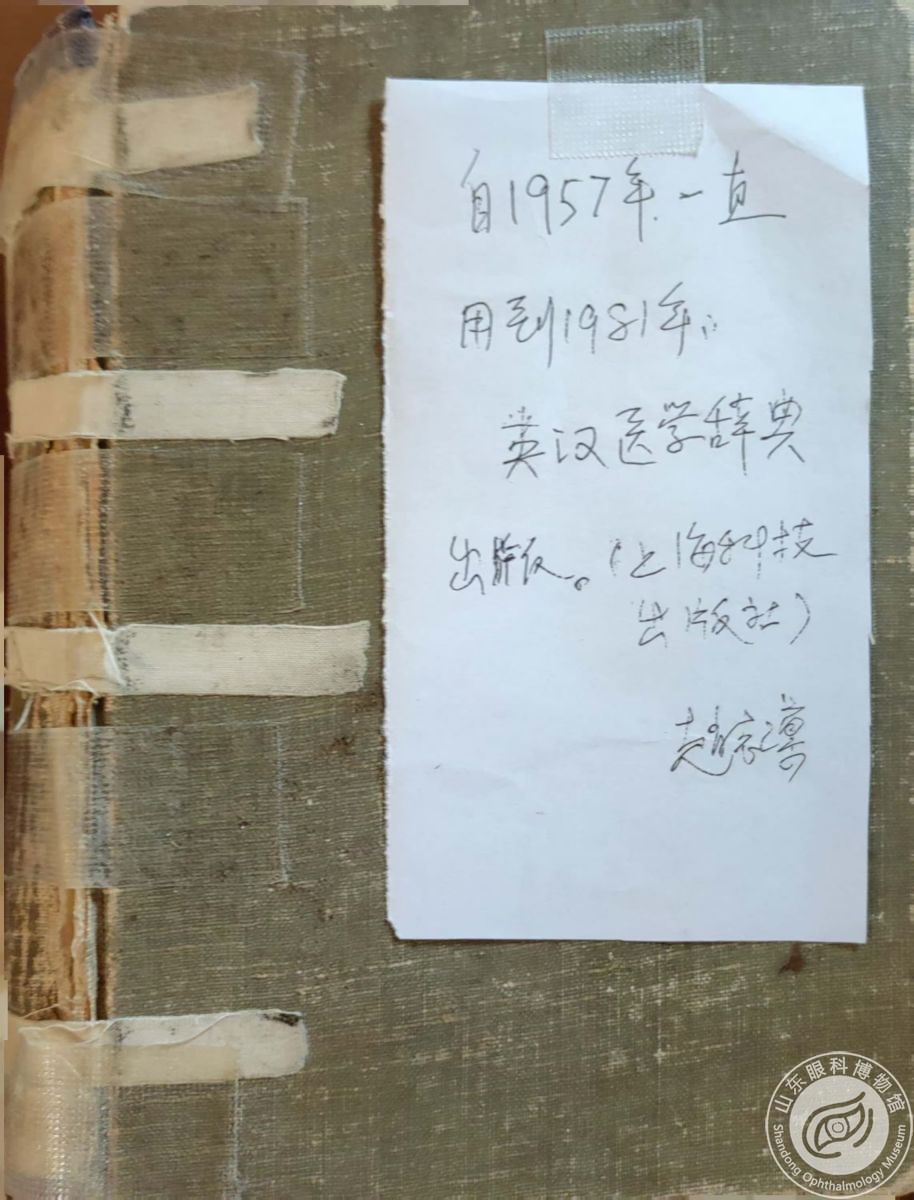 自1957年一直
用到1981年。
英汉医学辞典
出版。(上海科技
出版社)
赵家
山东眼科博物馆
Shandong Ophthalmology Museum